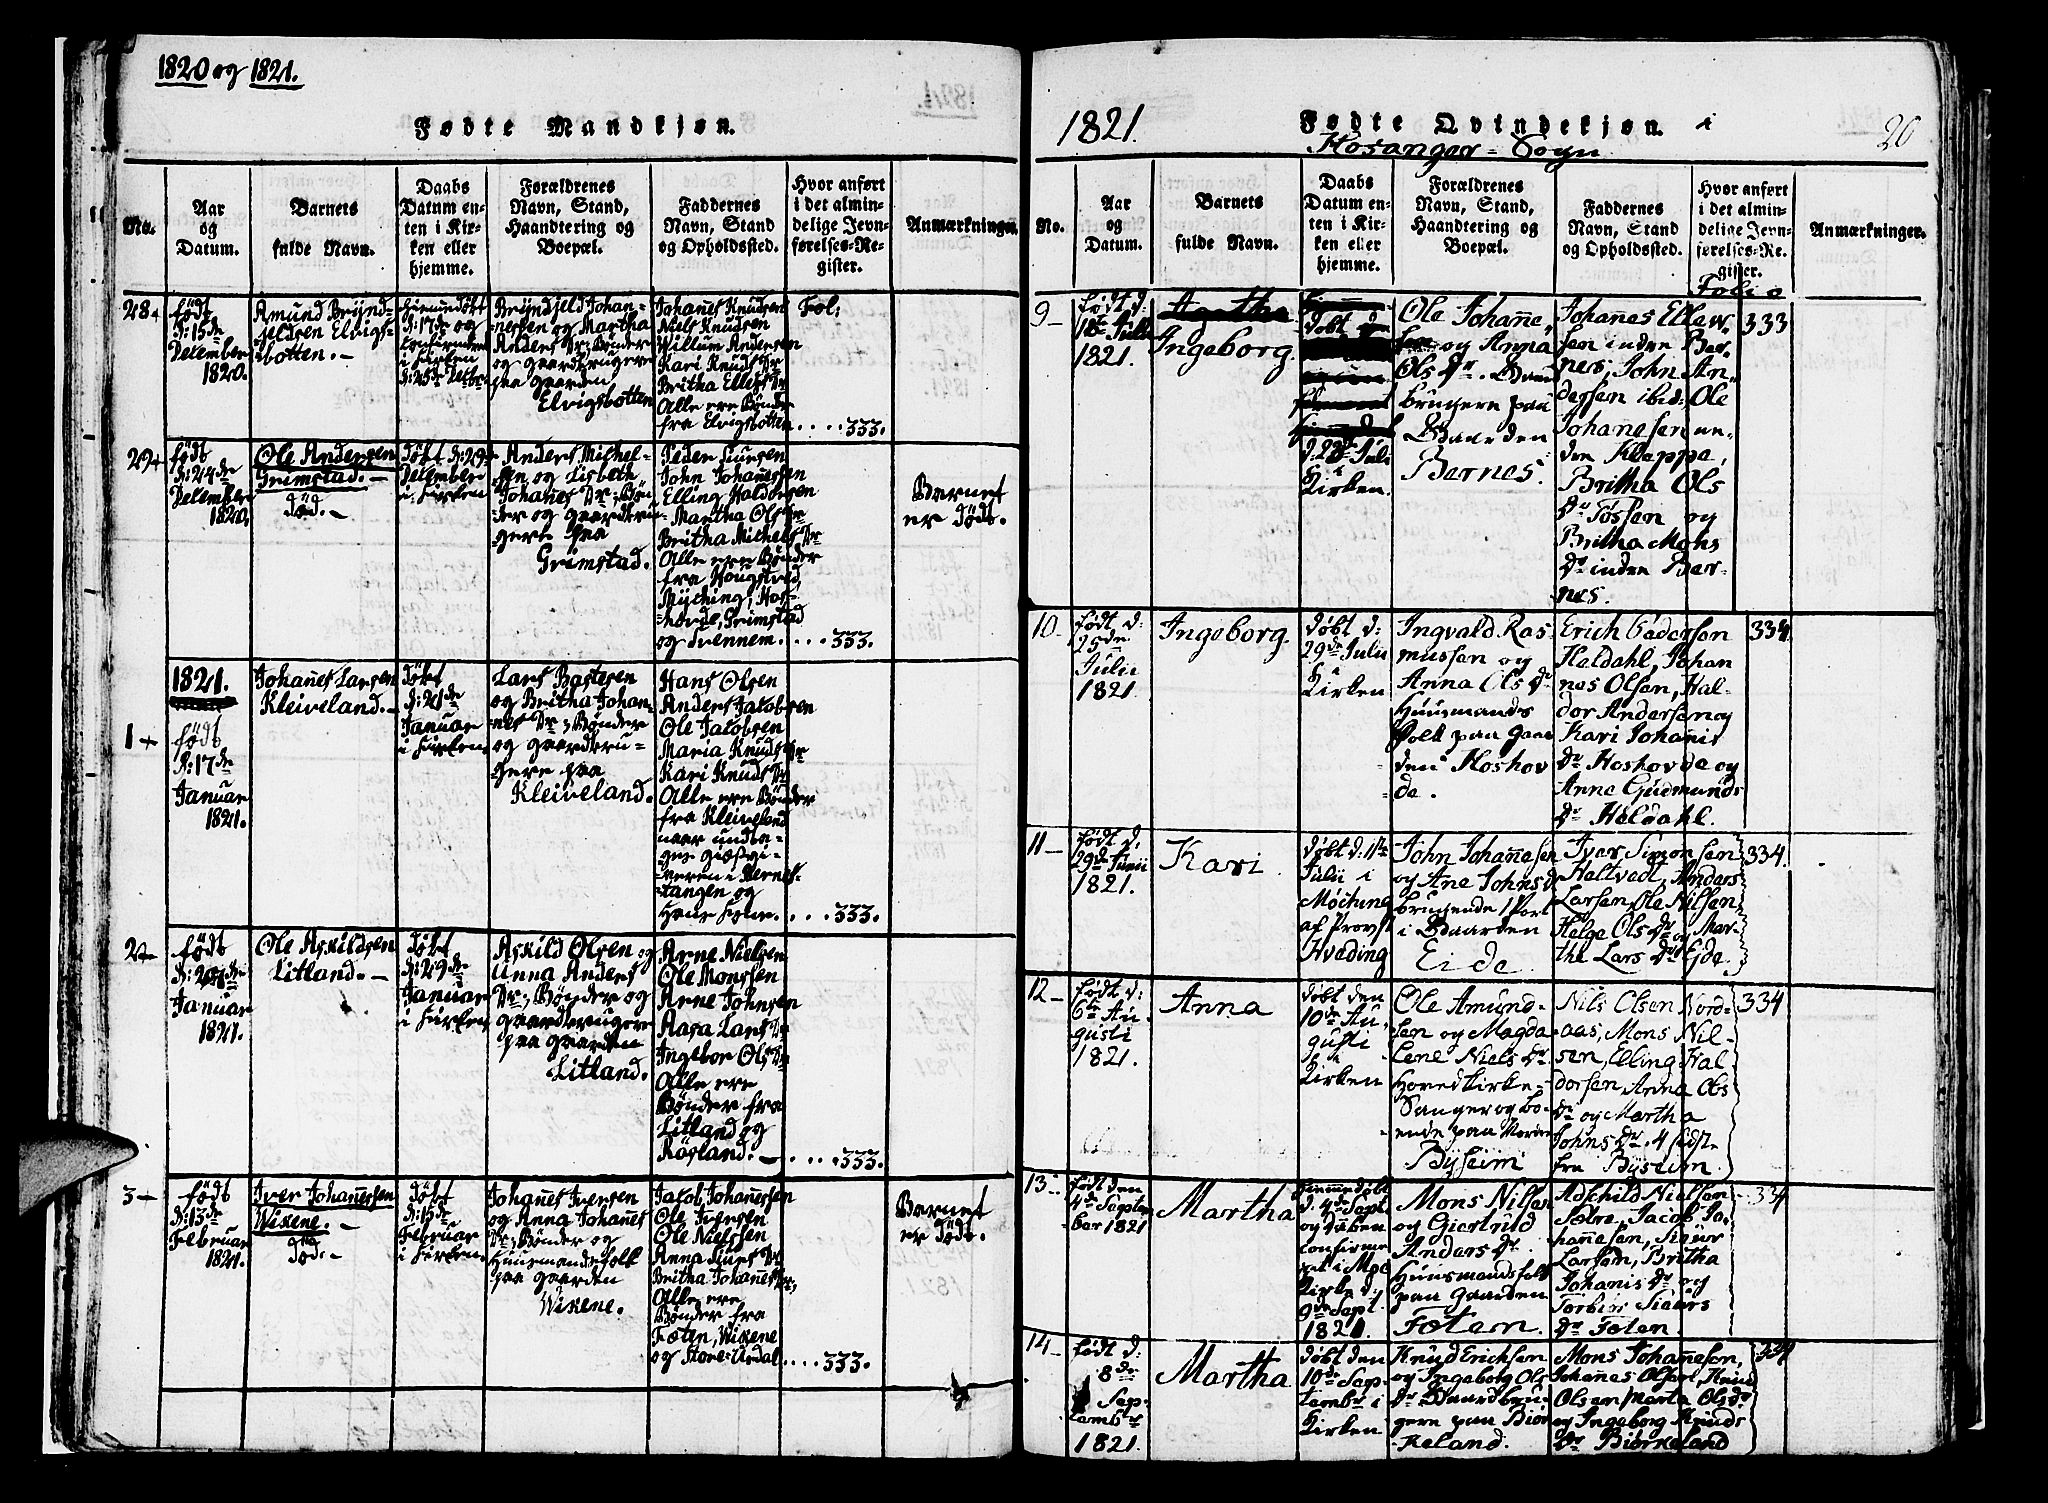 1820 og 1821.
Fødte Mandkjøn.
No.
Aar
og
Datum.
Barnets
fulde Navn.
Daabs
Datum en-
ten i Kir-
ken eller
hjemme.
Forældrenes
Navn, Stand,
Haandtering og
Boepæl.
Faddernes
Navn, Stand
og Opholdssted.
Hvor anført
i det almin-
delige Jevn-
førelses-Re-
gister.
Anmærkninger.
28
født
d: 15de
December
1820.
Amund Brynd-
jeldsen Elvigs-
botten.
hjemmedøbt
d: 17de og
confirmeret
i Kirken
d: 25de Decbr
Bryndjeld Johan-
nessen og Martha
Anders Dr; Bønder
og gaardbrugere
paa gaarden
Elvigsbotten
Johanes Knudsen
Niels Knudsen
Willum Andersen
Kari Knuds Dr
Britha Ellefs Dr
Alle ere Bønder
fra Elvigsbotten
Fol:
333.
29
født
d: 24de
December
1820.
Ole Andersen
Grimstad.
død.
døbt d: 29
December
i Kirken
Anders Michel-
sen og Lisbeth
Johanes Dr; Bøn-
der og gaardbru-
gere paa
Grimstad.
Peder Siursen
John Johanessen
Elling Haldorsen
Martha Ols Dr
Britha Michels Dr
Alle ere Bønder
fra Hougstvед
Myching, Hos-
hovde, Grimstad
og Tvennem.
333.
Barnet
er død.
1821.
1
født
d: 17de
Januar
1821.
Johannes Larsen
Kleiveland.
døbt
d: 21de
Januar
i Kirken
Lars Bastesen
og Britha Johan-
nes Dr; Bønder
og gaardbru-
gere paa
Kleiveland.
Hans Olsen
Anders Jacobsen
Ole Jacobsen
Maria Knuds Dr
Kari Knuds Dr
Alle ere Bønder
fra Kleiveland
naar undta-
ges giæstgi-
veren i Bernes-
tangen og
Hans Kone.
333.
2
født
Januar
1821.
Ole Askildsen
Litland.
døbt
d: 29de
Januar
i Kirken
Askild Olsen og
Anna Anders
Dr; Bønder og
gaardbrugere
paa gaarden
Litland.
Arne Nielsen
Ole Monssen
Arne Johnsen
Aasa Lars Dr
Ingebor Ols Dr
Alle ere
Bønder fra
Litland og
Røsland.
333.
3
født
d: 13de
Februar
1821.
Iver Johanessen
Wikene.
død.
døbt
d: 15de
Februar
i Kirken.
Johanes Iversen
og Anna Johanes
Dr; Bønder og
Huusmandsfolk
paa gaarden
Wikene.
Jacob Johanessen
Ole Iversen
Ole Nielssen
Anna Siurs Dr
Britha Johanes Dr,
Alle ere
Bønder fra
Foten, Wikene
og Store-Urdal
333.
Barnet
er død.
1821.
Fødte Qvindekjøn. i
Hosanger-Sogn
20
No.
Aar
og
Datum.
Barnets
fulde Navn.
Daabs
Datum en-
ten i Kir-
ken eller
hjemme.
Forældrenes
Navn, Stand,
Haandtering og
Boepæl.
Faddernes
Navn, Stand
og Opholdssted.
Hvor anført
i det almin-
delige Jevn-
førelses-Re-
gister.
Folio
Anmærkninger.
9
født d:
18de Julii
1821.
Agatha
Ingeborg.
døbt
d: 22de Juli
i
Kirken.
Ole Johanne-
sen og Anna
Ols Dr. Gaard
brugere paa
Gaarden
Bernes.
Johanes Ellew-
sen indre Ber-
nes, John An-
dersen ibid: Ole
Johanesen an-
den Kleppe,
Britha Ols
Dr Tøssen og
Britha Mons
Dr indre Ber-
nes.
333
10
født d:
25de
Julii
1821
Ingeborg.
døbt d:
29de Julii
i
Kirken
Ingvald Ras
mussen og
Anna Ols Dr
Huusmands
folk paa Gaar
den Hoshov
de.
Erich Gudersen
Haldahl, Johan
nes Olsen, Hal-
dor Andersen og
Kari Johanis
Dr Hoshovde og
Anne Gudmunds
Dr Haldahl.
334
11
født d.
29de Junii
1821.
Kari
døbt d. 11te
Julii i
Møching
af Provst
Hveding
John Johannesen
og Ane Johns Dr
brugende 1 Part
i Gaarden
Eide.
Iver Simonsen
Haltvedt, Anders
Larsen, Ole Nilsen,
Helge Ols Dr og Mar-
the Lars Dr Eide
334.
12
født d:
6te Au-
gusti
1821.
Anna
døbt den
10de Au-
gusti
i
Kirken
Ole Amund-
sen og Magda
Lene Niels Dr
Hovedkirke-
Sanger og bo-
ende paa
Byseim
Nils Olsen Nord-
aas, Mons Nil-
sen, Elling Hal-
dorsen Anna Ols
Dr og Martha
Johns Dr. 4 sidste
fra Byseim.
334
13
født den
4de Septem
ber 1821
Martha
hiemmedøbt
d. 4de Sept
og Daaben
confirme
ret i Moe
Kirke d.
9de Sept.
1821.
Mons Nilsen
og Giertrud
Anders Dr.
Huusmandsfolk
paa Gaarden
Fotem.
Adschild Nielsen
Søbre, Jacob Jo-
hannesen, Siuur
Larsen, Britha
Johanis Dr og
Torbiør Siuurs
Dr Foten
334
14
født d:
8de
Sep-
tembr
1821.
Martha
døbt den
10de Sep-
tembr i
Kirken
Knud Erichsen
og Ingeborg Ols
Dr Gaardbru-
gere paa Biør
keland.
Mons Johannesen,
Johannes Olsen, Knud
Olsen Marta Ols Dr
og Ingeborg Knuds
Dr Biørkeland
334